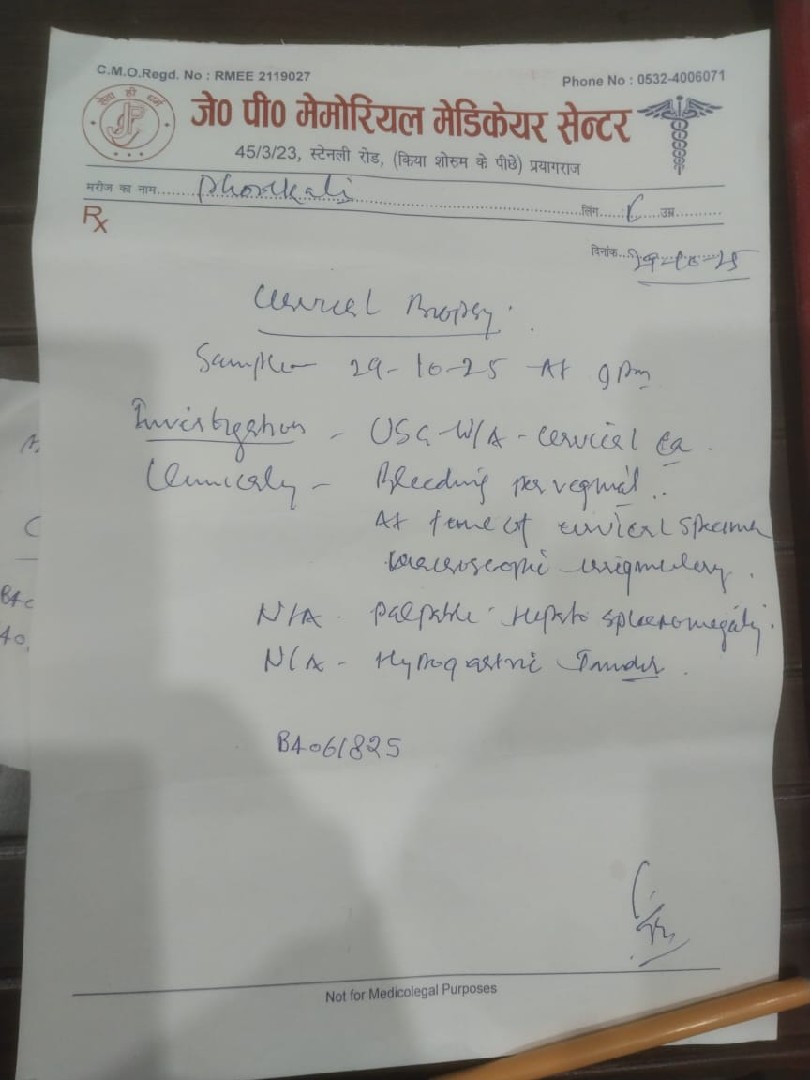 C.M.O.Regd. No : RMEE 2119027
Phone No : 0532-4006071
जे0 पी0 मेमोरियल मेडिकेयर सेन्टर
45/3/23, स्टेनली रोड, (किया शोरुम के पीछे) प्रयागराज
मरीज का नाम.......... लिंग...... उम्र..........
Rx
दिनांक...
Cervical Biopsy.
Sample - 29-10-25 At 9 Pm
Investigation - USG-W/A - Cervical Ca.
Clinically - Bleeding per
At time of cervical specimen
macroscopic
palpable Hepato splenomegaly.
Hypogastric Tender.
B4061825
Not for Medicolegal Purposes